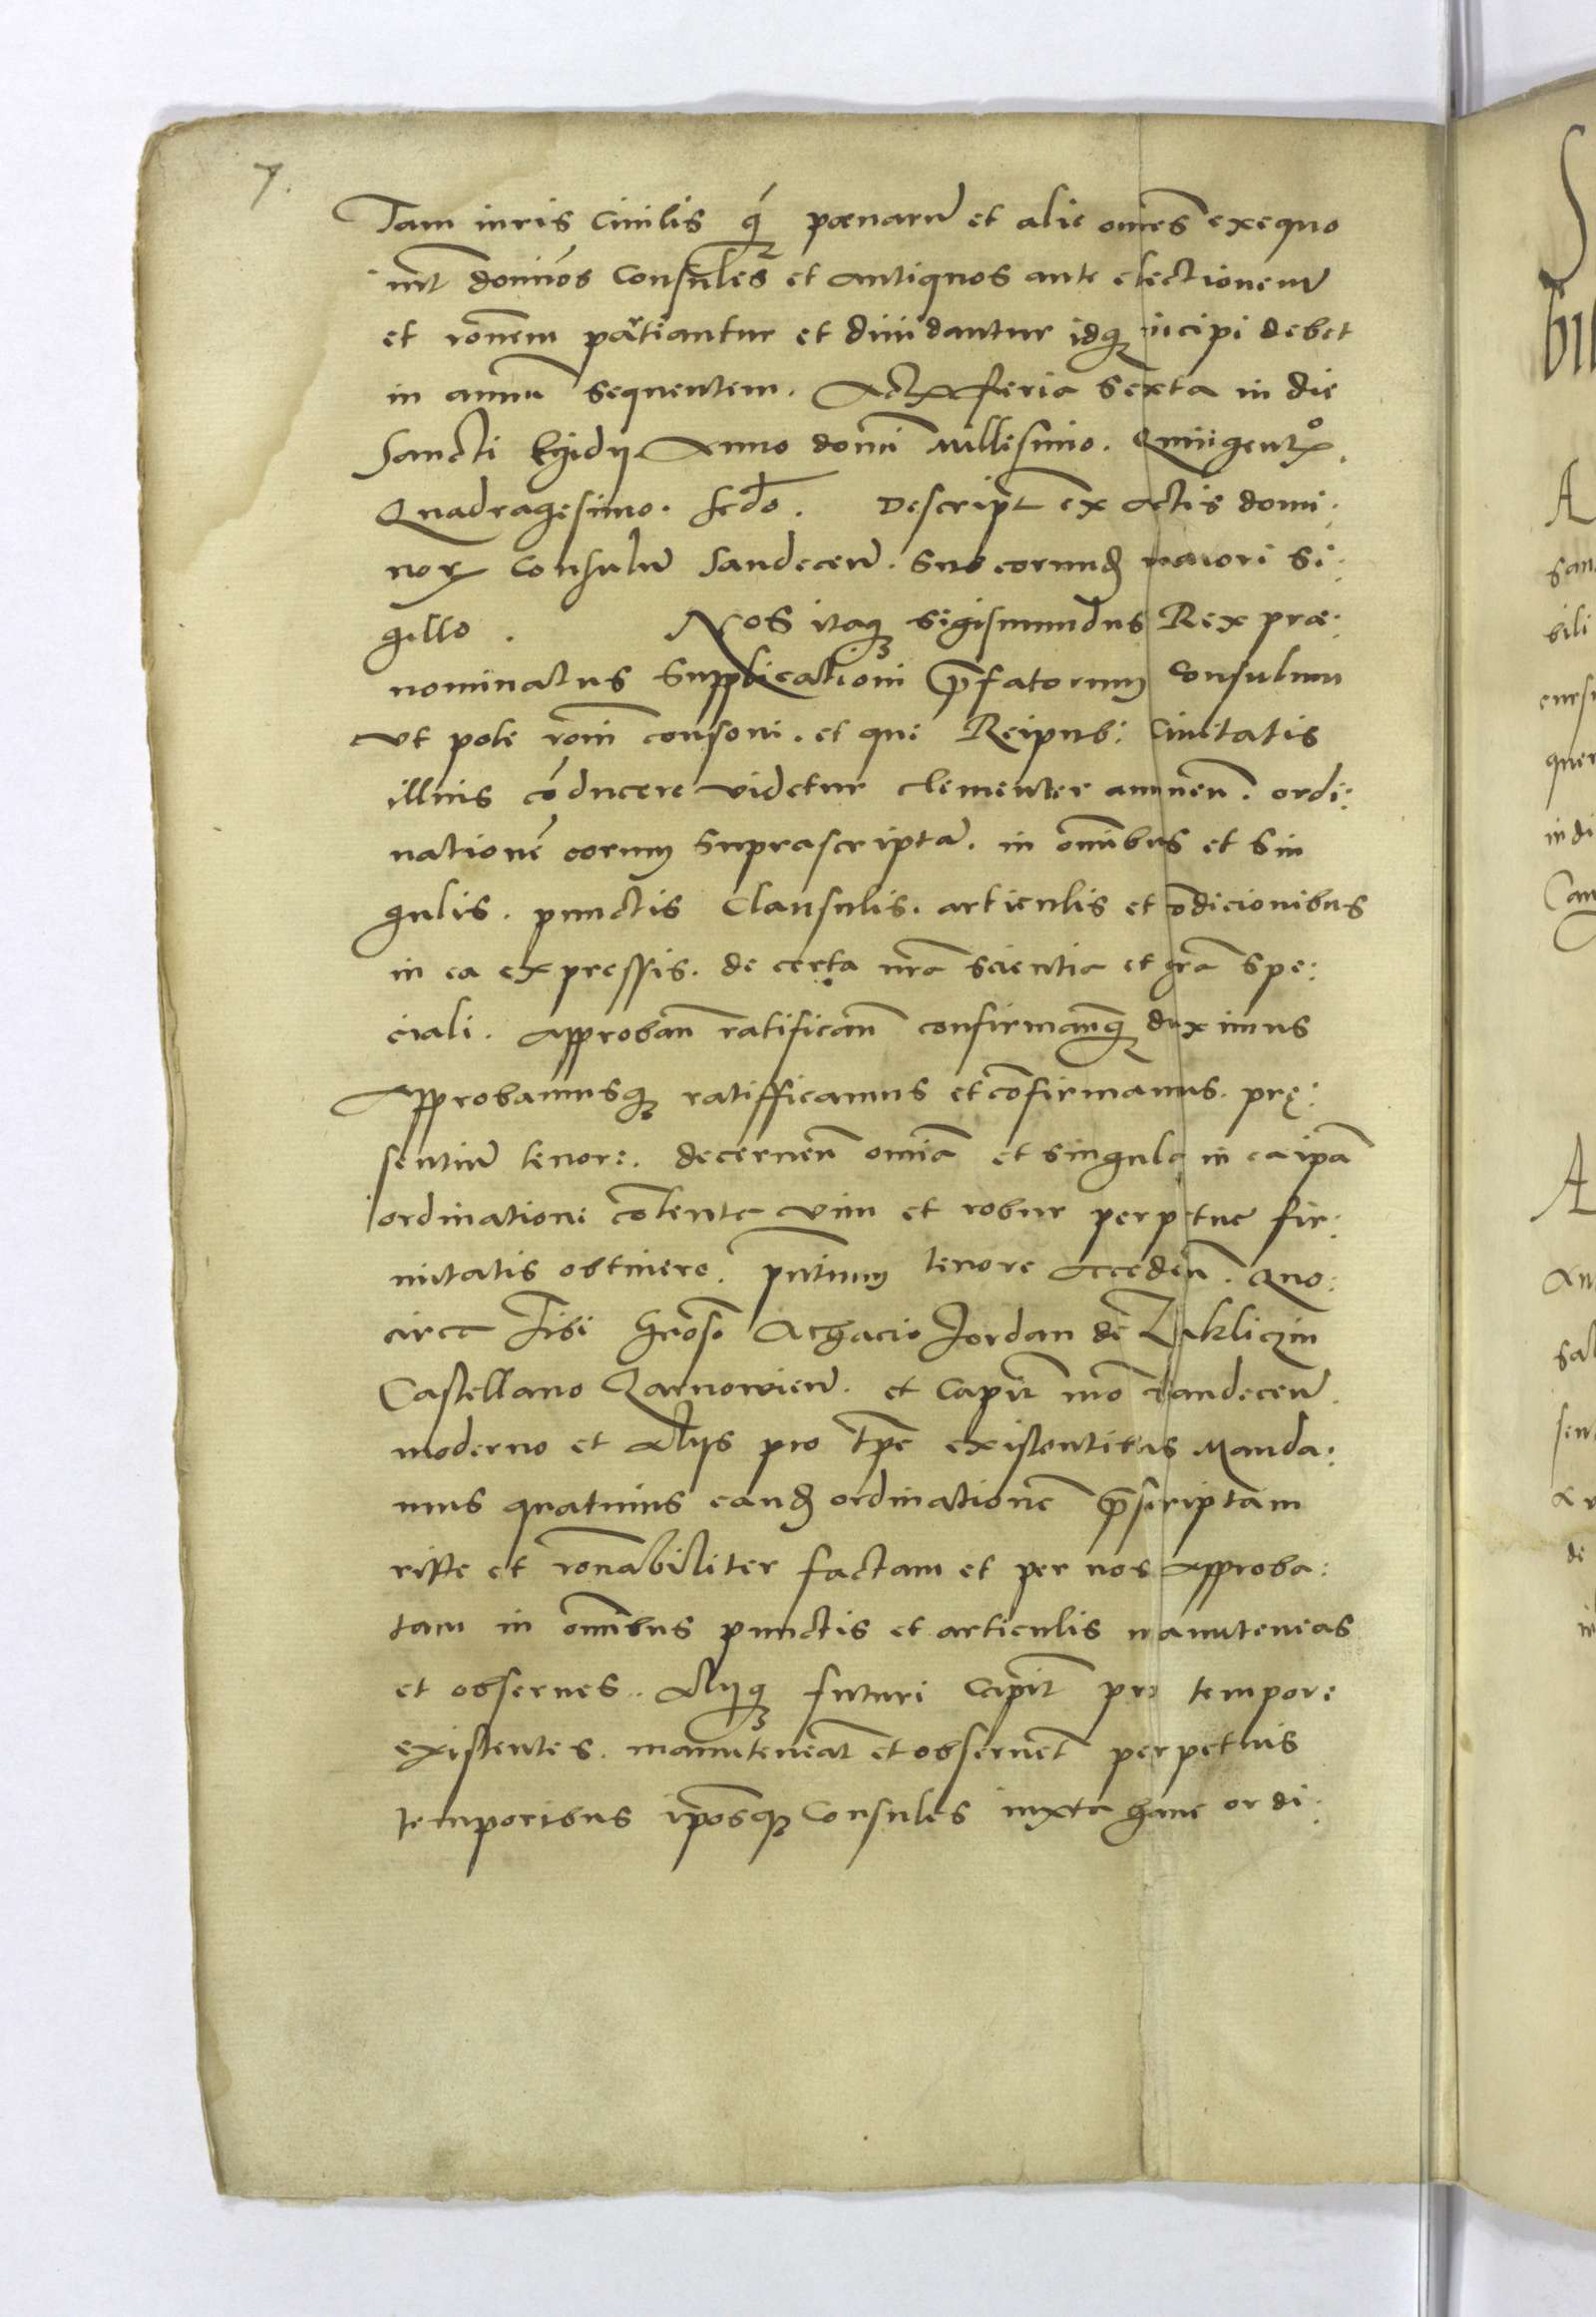 7.
Tam iuris Ciuilis q̃ȝ pœnarũ et alie om̃es exequo
int̃ dom̃os Consules et antiquos ante electionem
et rõnem partiantur et diuidantur idq̃ȝ incipi debet
in annũ sequentem. Actũ feria sexta in die
Sancti Egidij Anno domĩ Millesimo. Quĩgentº.
Quadragesimo. Scdo. Descript̃ ex Actis domi:
noꝝ Consulũ Sandeceñ. Sub eorundꝫ maiori Si:
gillo. Nos itaqȝ Sigismundus Rex præ:
nominatus Supplicationi p̃fatorum Consulum
vt pote rõni consoni. et que Reipub: Ciuitatis
illius cõducere videtur clementer annueñ. ordi:
nationẽ eorum suprascriptã. in om̃ibus et sin
gulis. punctis Clausulis. articulis et cõdicionibus
in ea expressis. de certa nr̃a scientia et grã spe:
ciali. approbañ ratificañ confirmanq̃ȝ duximus
Approbamusqȝ ratifficamus et cõfirmamus. prę:
sentiũ tenore. decerneñ om̃ia et singula in ea ip̃a
ordinatione cõtenta vim et robur perpetue fir:
mitatis obtinere. pñtium tenore accedeñ. Quo:
circa Tibi Gr̃oso Achacio Jordan de Zakliczin
Castellano Zarnowieñ. et Capit̃ nr̃o Sandeceñ.
moderno et Alijs pro tp̃e existentibus Manda:
mus quatinus eandꝫ ordinationẽ p̃scriptam
ritte et rõnabiliter factam et per nos approba:
tam in om̃ibus punctis et articulis manuteneas
et obserues. Alijqȝ futuri Capit̃ pro tempore
existentes. manuteneãt et obseruẽt perpetuis
temporibus ip̃osqȝ Consules iuxta hanc ordi: